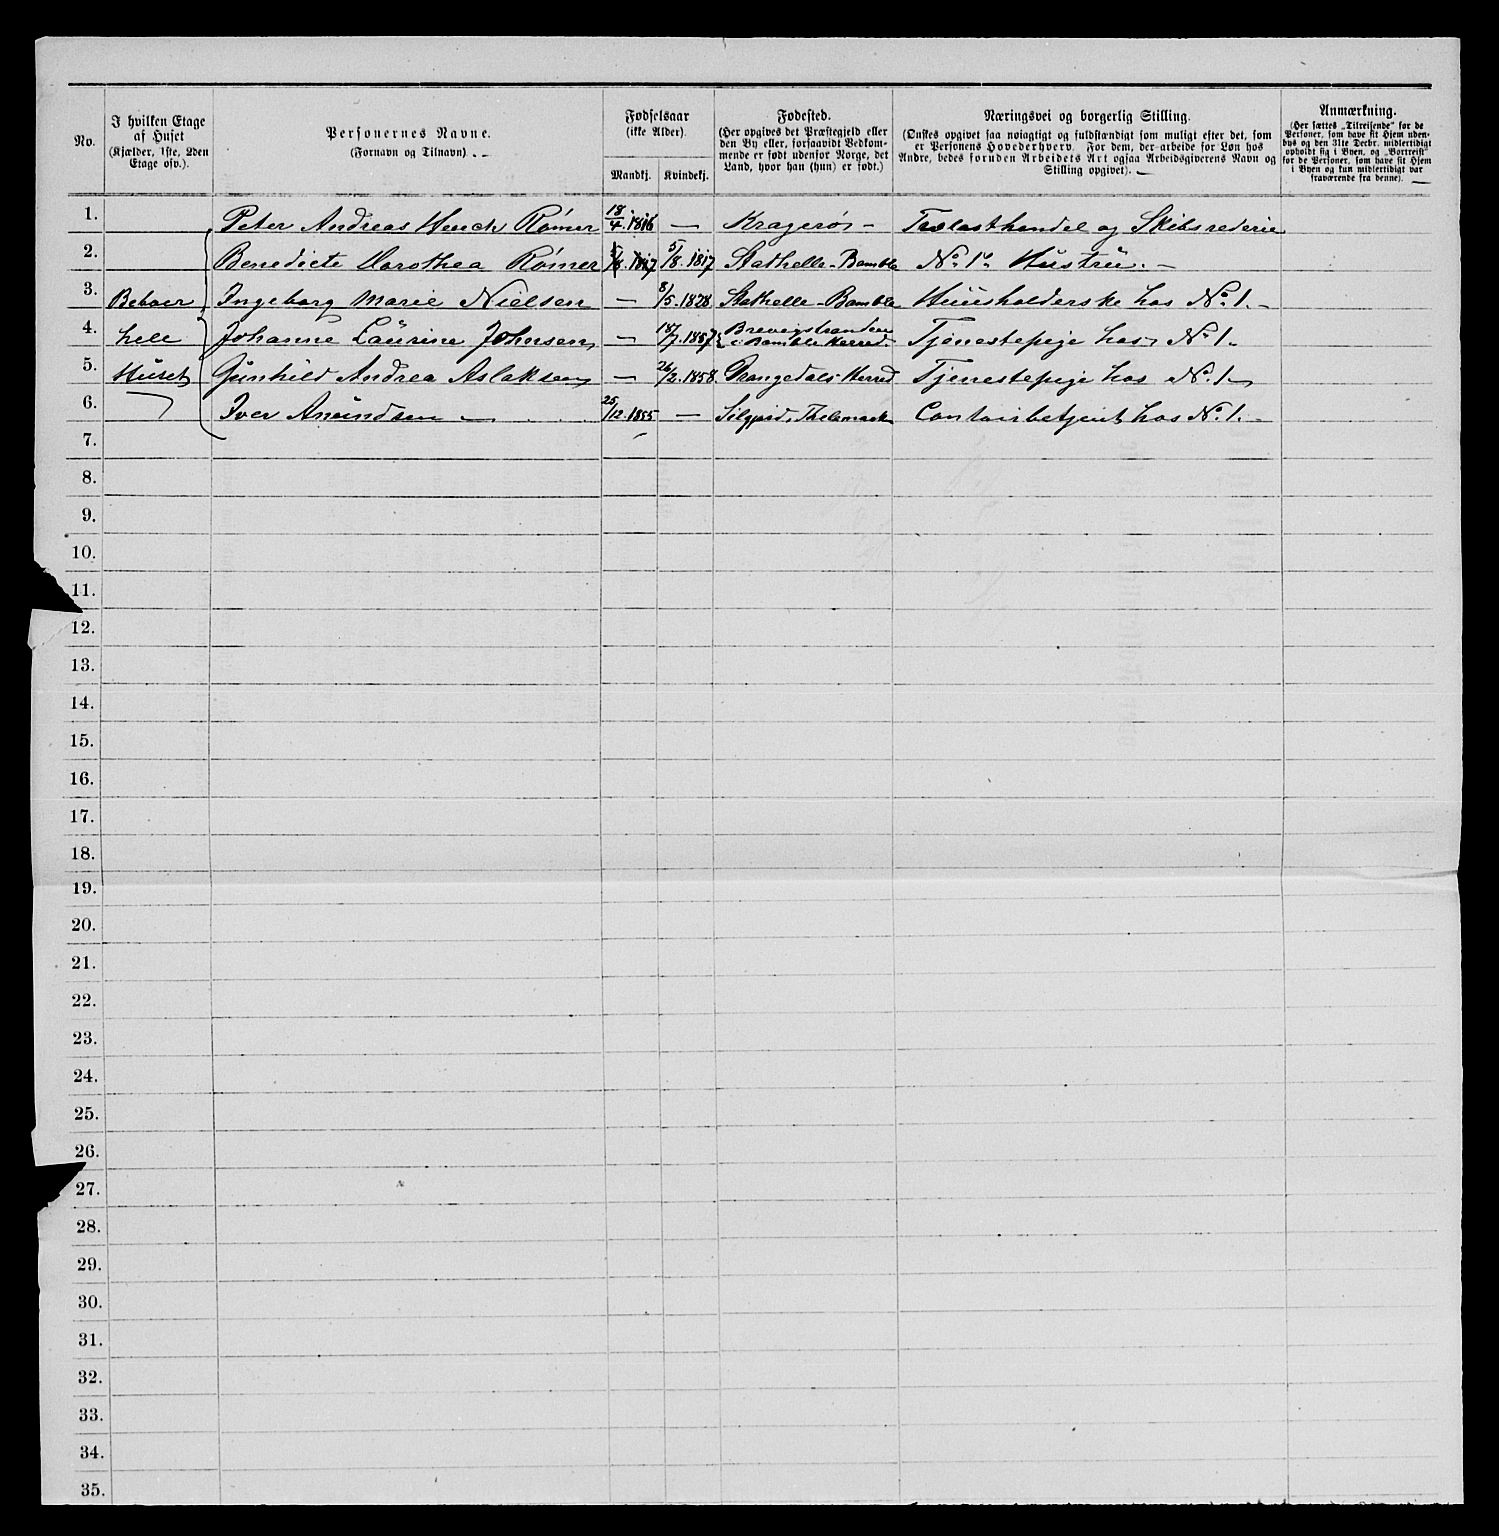 No.
I hvilken Etage
af Huset
(Kjælder, 1ste, 2den
Etage osv.).
Personernes Navne.
(Fornavn og Tilnavn).
Fødselsaar
(ikke Alder).
Mandkj. Kvindekj.
Fødested.
(Her opgives det Præstegjeld eller
den By eller, forsaavidt Vedkom-
mende er født udenfor Norge, det
Land, hvor han (hun) er født.)
Næringsvei og borgerlig Stilling.
(Ønskes opgivet saa nøiagtigt og fuldstændigt som muligt efter det, som
er Personens Hovederhverv. For dem, der arbeide for Løn hos
Andre, bedes foruden Arbeidets Art ogsaa Arbeidsgiverens Navn og
Stilling opgivet).
Anmærkning.
(Her sættes „Tilreisende“ for de
Personer, som have sit Hjem uden-
bys og den 31te Decbr. midlertidigt
opholdt sig i Byen, og „Bortreist“
for de Personer, som have sit Hjem
i Byen og kun midlertidigt var
fraværende fra denne).
1. Peter Andreas Heuch Rømer 18/4.1816 — Kragerø — Trælasthandel og Skibsrederie
2. Benedicte Dorothea Rømer 5/8.1817 5/8.1817 Stathelle-Bamble No. 1s Hustru. —
3. Beboer Ingeborg Marie Nielsen — 8/5.1828 Stathelle-Bamble Huusholderske hos No. 1. —
4. hele Johanne Laurine Johnsen — 18/7.1857 Brevigstranden i Bamble Herred. Tjenestepige hos No 1.
5. Huset Gunhild Andrea Aslaksen — 26/2.1858. Drangedals Herred Tjenestepige hos No. 1
6. Iver Anundsen — 25/12.1855 — Silgjord, Thelemarken Contoirbetjent hos No. 1. —
7.
8.
9.
10.
11.
12.
13.
14.
15.
16.
17.
18.
19.
20.
21.
22.
23.
24.
25.
26.
27.
28.
29.
30.
31.
32.
33.
34.
35.